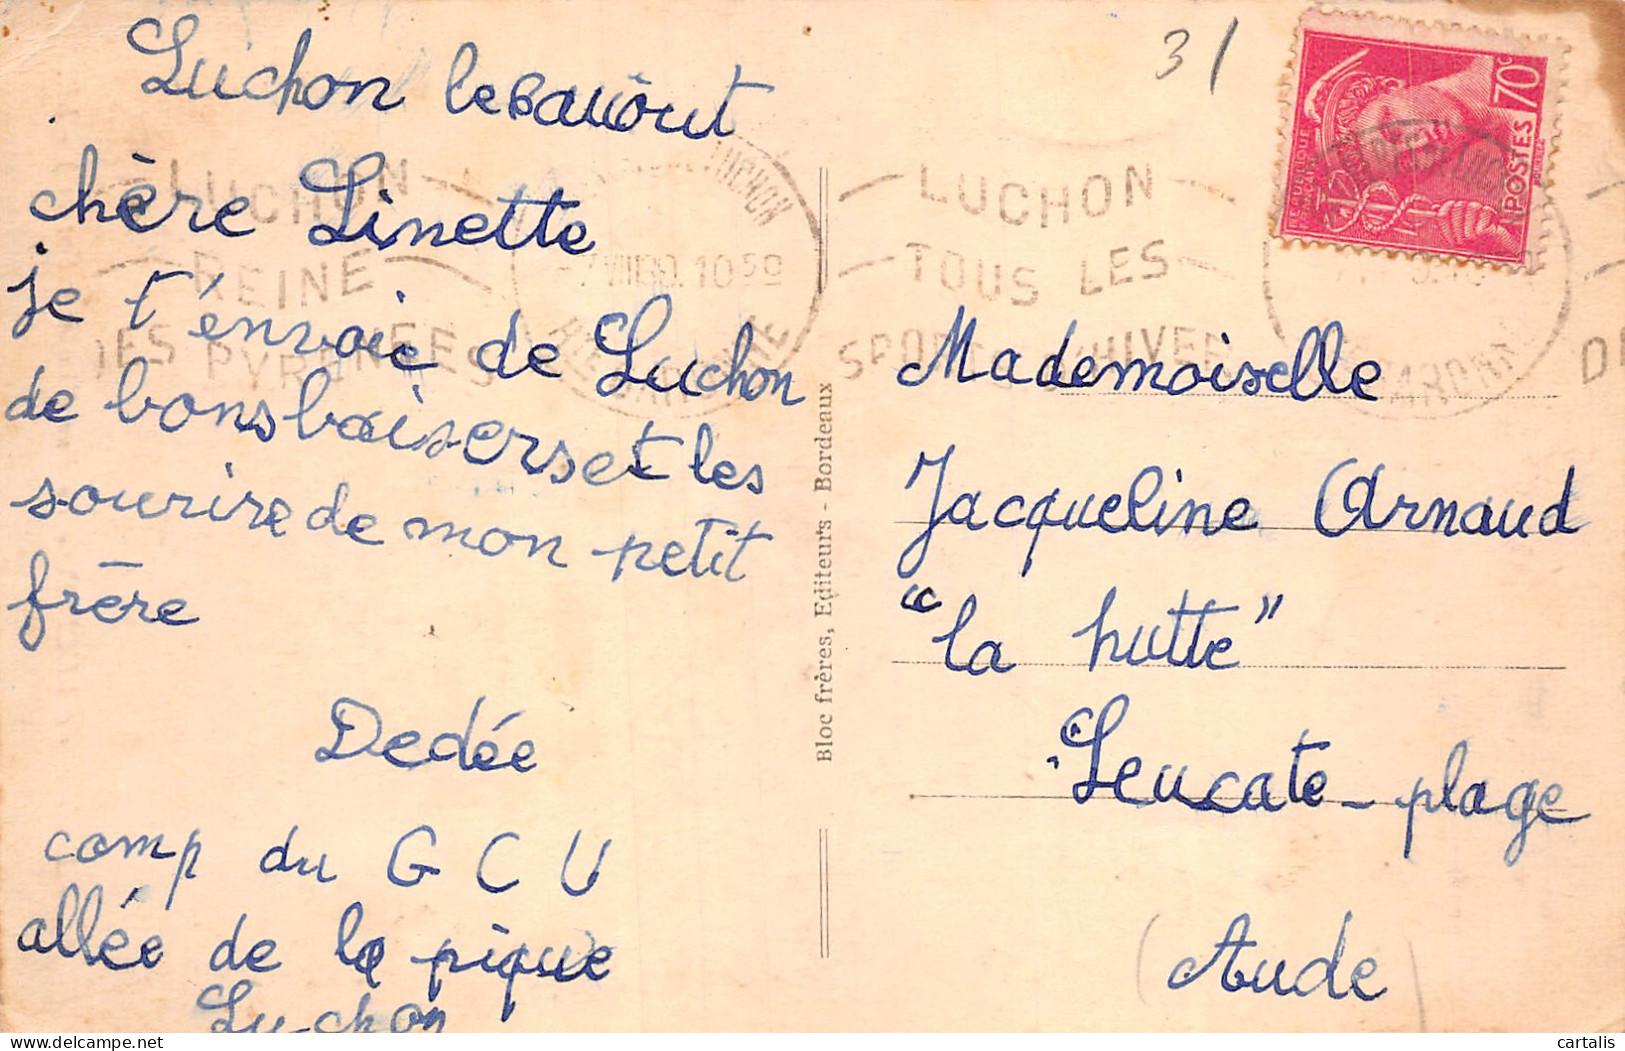 Luchon le 6 août
chère Linette
je t'envoie de Luchon
de bons baisers et les
sourire de mon petit
frère
Dedée
comp du G C U
allée de la pique
Luchon
Bloc frères, Editeurs - Bordeaux
31
70c
POSTES
LUCHON
REINE
DES PYRENEES
LUCHON
TOUS LES
SPORTS D'HIVER
Mademoiselle
Jacqueline Arnaud
"la hutte"
Leucate-plage
(Aude)
cartalis